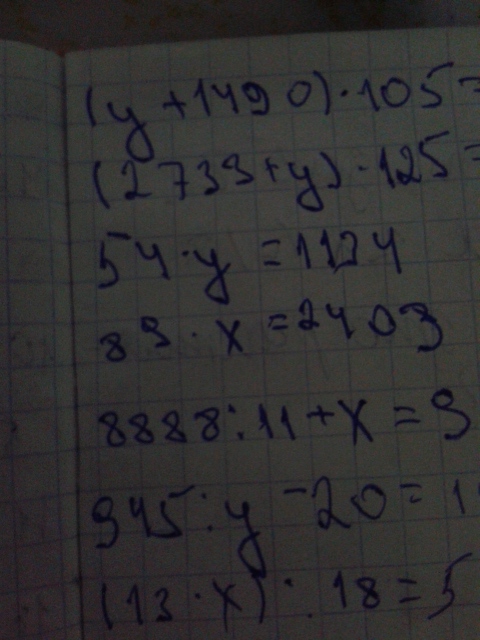 (y + 1490) · 105 =
(2739 + y) · 125 =
54 · y = 1134
89 · x = 2403
8888 : 11 + x = 9
945 : y - 20 = 1
(13 · x) : 18 = 5